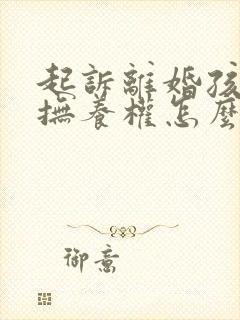 起訴離婚孩
撫養權怎麼
御意